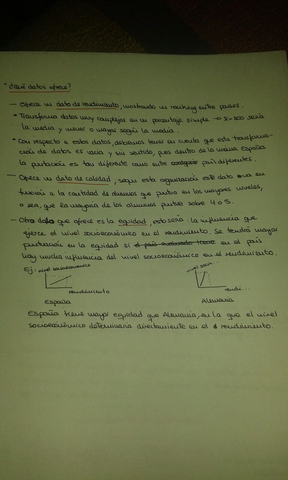 * ¿Qué datos ofrece?
— Ofrece un dato de rendimiento, mostrando un ranking entre países.
* Transforma datos muy complejos en un porcentaje simple → x = 500 sería
la media y menor o mayor según la media.
* Con respecto a estos datos, debemos tener en cuenta que esta transforma-
ción de datos es vaga y sin sentido, pues dentro de la misma España
la puntuación es tan diferente como entre países diferentes.
— Ofrece un dato de calidad, según esta organización este dato es en
función a la cantidad de alumnos que puntúa en los mayores niveles,
o sea, que la mayoría de los alumnos puntúe sobre 4 o 5.
— Otro dato que ofrece es la equidad, esto sería la influencia que
ejerce el nivel socioeconómico en el rendimiento. Se tendrá mayor
puntuación en la equidad si el país evaluado tiene en el país
hay mucha influencia del nivel socioeconómico en el rendimiento.
Ej: nivel socioeconómico
rendimiento
España
nivel socio.
rendi...
Alemania
España tiene mayor equidad que Alemania, en la que el nivel
socioeconómico determinaría directamente en el rendimiento.